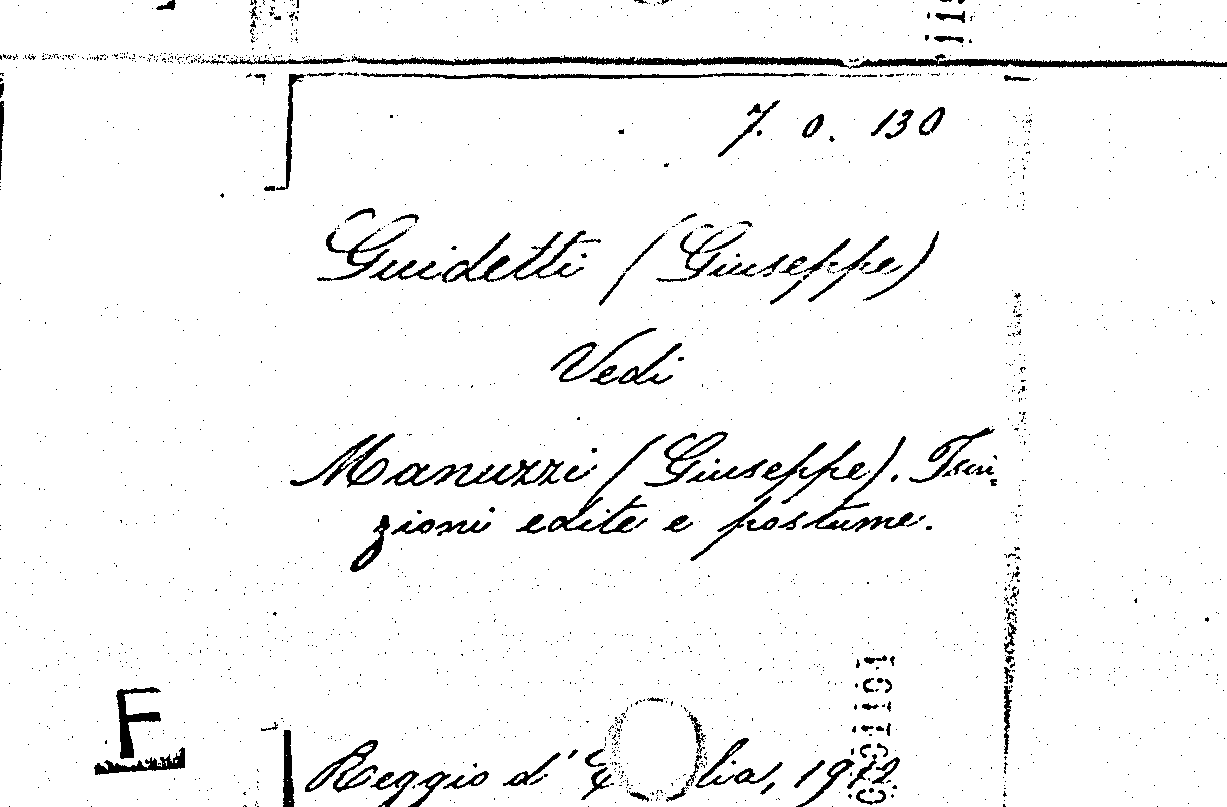 7. O. 130
Guidetti (Giuseppe)
Vedi
Manuzzi (Giuseppe). Iscri-
zioni edite e postume.
F
Reggio d'E lia,